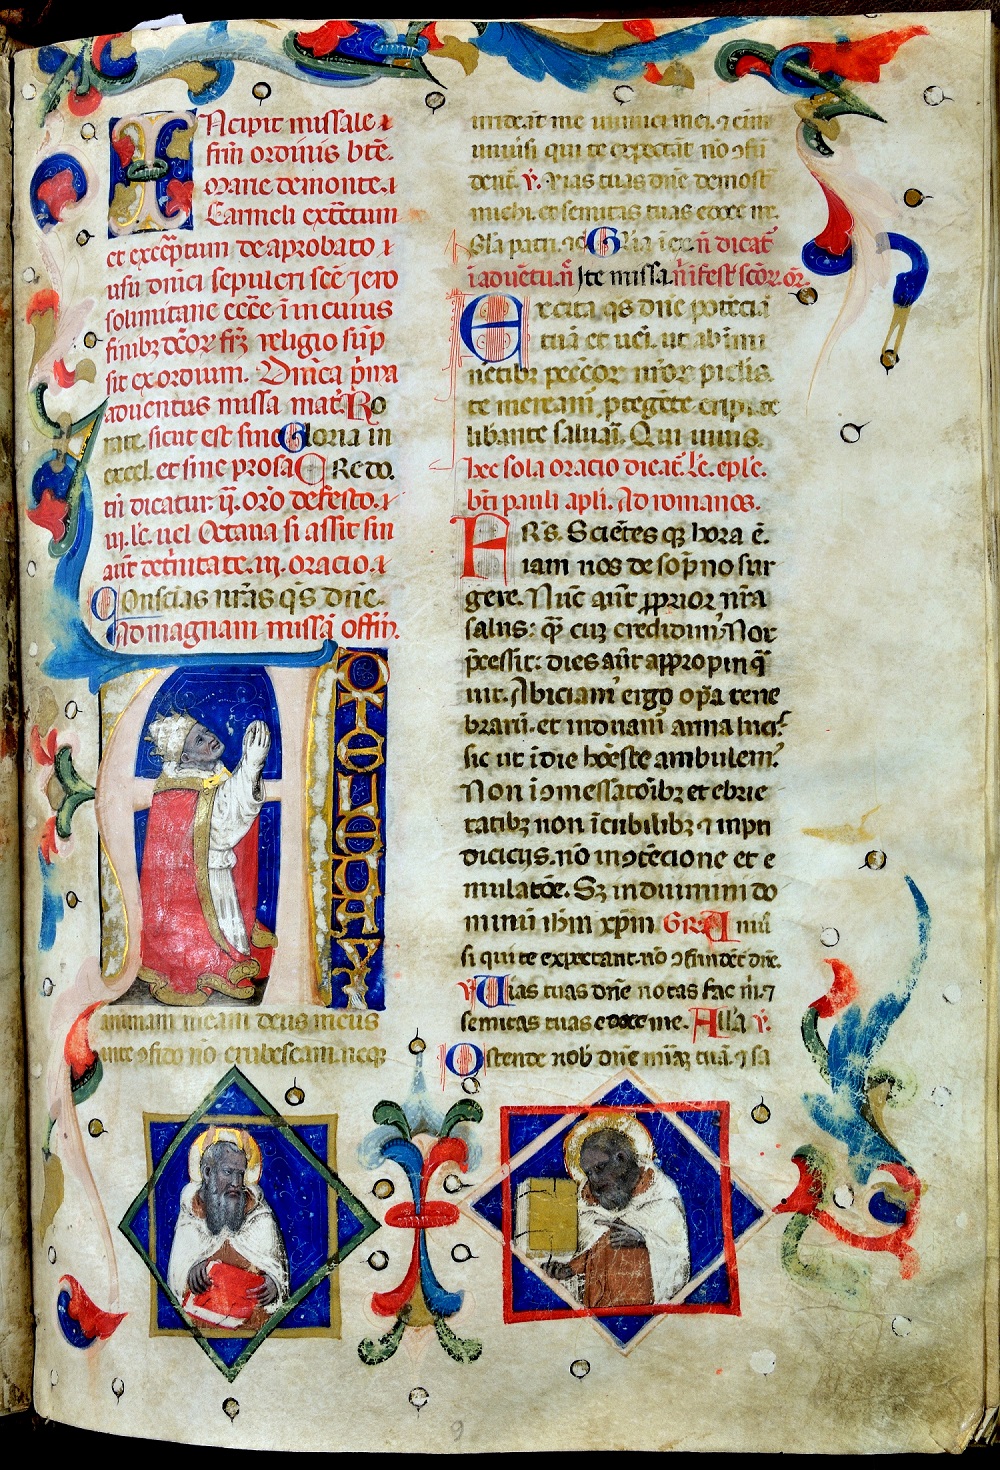 INcipit missale
frm ordinis bte
marie de monte
Carmeli exemtum
et excerptum de aprobato
usu dnici sepulcri sce Jero
solimitane eccie in cuius
finibz dcor frz religio sup
sit exordium. Dnica prima
aduentus missa mat. Ro
rate. sicut est sine Gloria in
excel. et sine prosa CRedo.
tn dicatur. oro de festo.
iii. lc. uel Octaua si assit sin
aut de trinitate. iii. oracio
Conscias nras qs dne.
Ad magnam missa offm.
AD TE LEVAVI
animam meam deus meus
in te 9fido no erubescam. neqz
irrideat me inimici mei. 7 eni
uniusi qui te expectat no 9fu
dent. V. Vias tuas dne demost
michi. et semitas tuas edoce me.
Gla patri. Gloria i ex. n dicat
i aduetu. n Ite missa. n i fest scor. or.
Excita qs dne potecia
tua et ueni. ut ab imi
netibz pccor nror piclis
te meream ptegete eripi. te
libante saluari. Qui uiuis.
hec sola oracio dicat. lc. eple.
bti pauli apli. Ad romanos.
FRs. Scietes qz hora e.
iam nos de sopno sur
gere. Nuc aut pprior nra
salus: q cuz credidim. Nox
pcessit: dies aut appropinq
uit. Abiciam ergo opa tene
brarum. et induam arma lucis
sic ut i die hoeste ambulem.
Non i 9messatoibz et ebrie
tatibz non i cubilibz 7 inpu
diciciis. no in 9tecione et e
mulatoe. Sz induimini do
minu ihm xpm GRA. A niu
si qui te expectant. no 9fundet dne.
V Uias tuas dne notas fac m. 7
semitas tuas edoce me. Alla V.
Ostende nob dne miaz tua. 7 sa
9